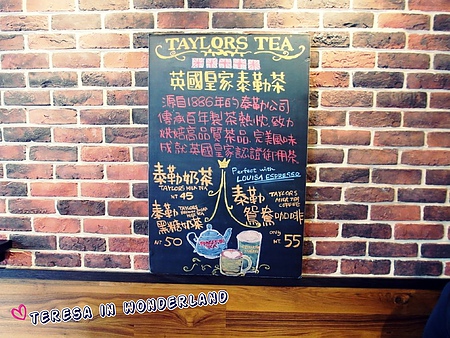 TAYLORS TEA
英國皇家泰勒茶
源自1886年的泰勒公司
傳承百年製茶熱忱,致力
烘焙高品質茶品,完美風味
成就英國皇家認證御用茶
泰勒奶茶
TAYLORS MILK TEA
NT 45
Perfect with
LOUISA ESPRESSO
泰勒
黑糖奶茶
NT 50
泰勒
TAYLORS
MILK TEA
COFFEE
鴛鴦咖啡
ONLY
NT 55
TERESA IN WONDERLAND